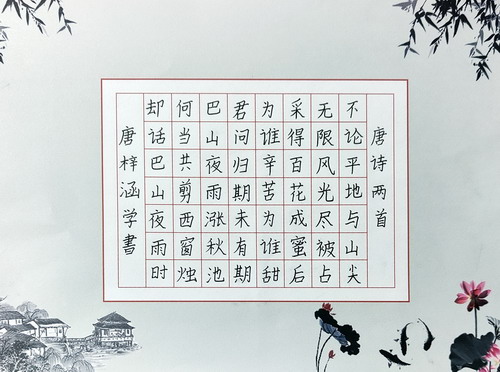 唐诗两首
不论平地与山尖
无限风光尽被占
采得百花成蜜后
为谁辛苦为谁甜
君问归期未有期
巴山夜雨涨秋池
何当共剪西窗烛
却话巴山夜雨时
唐梓涵学書